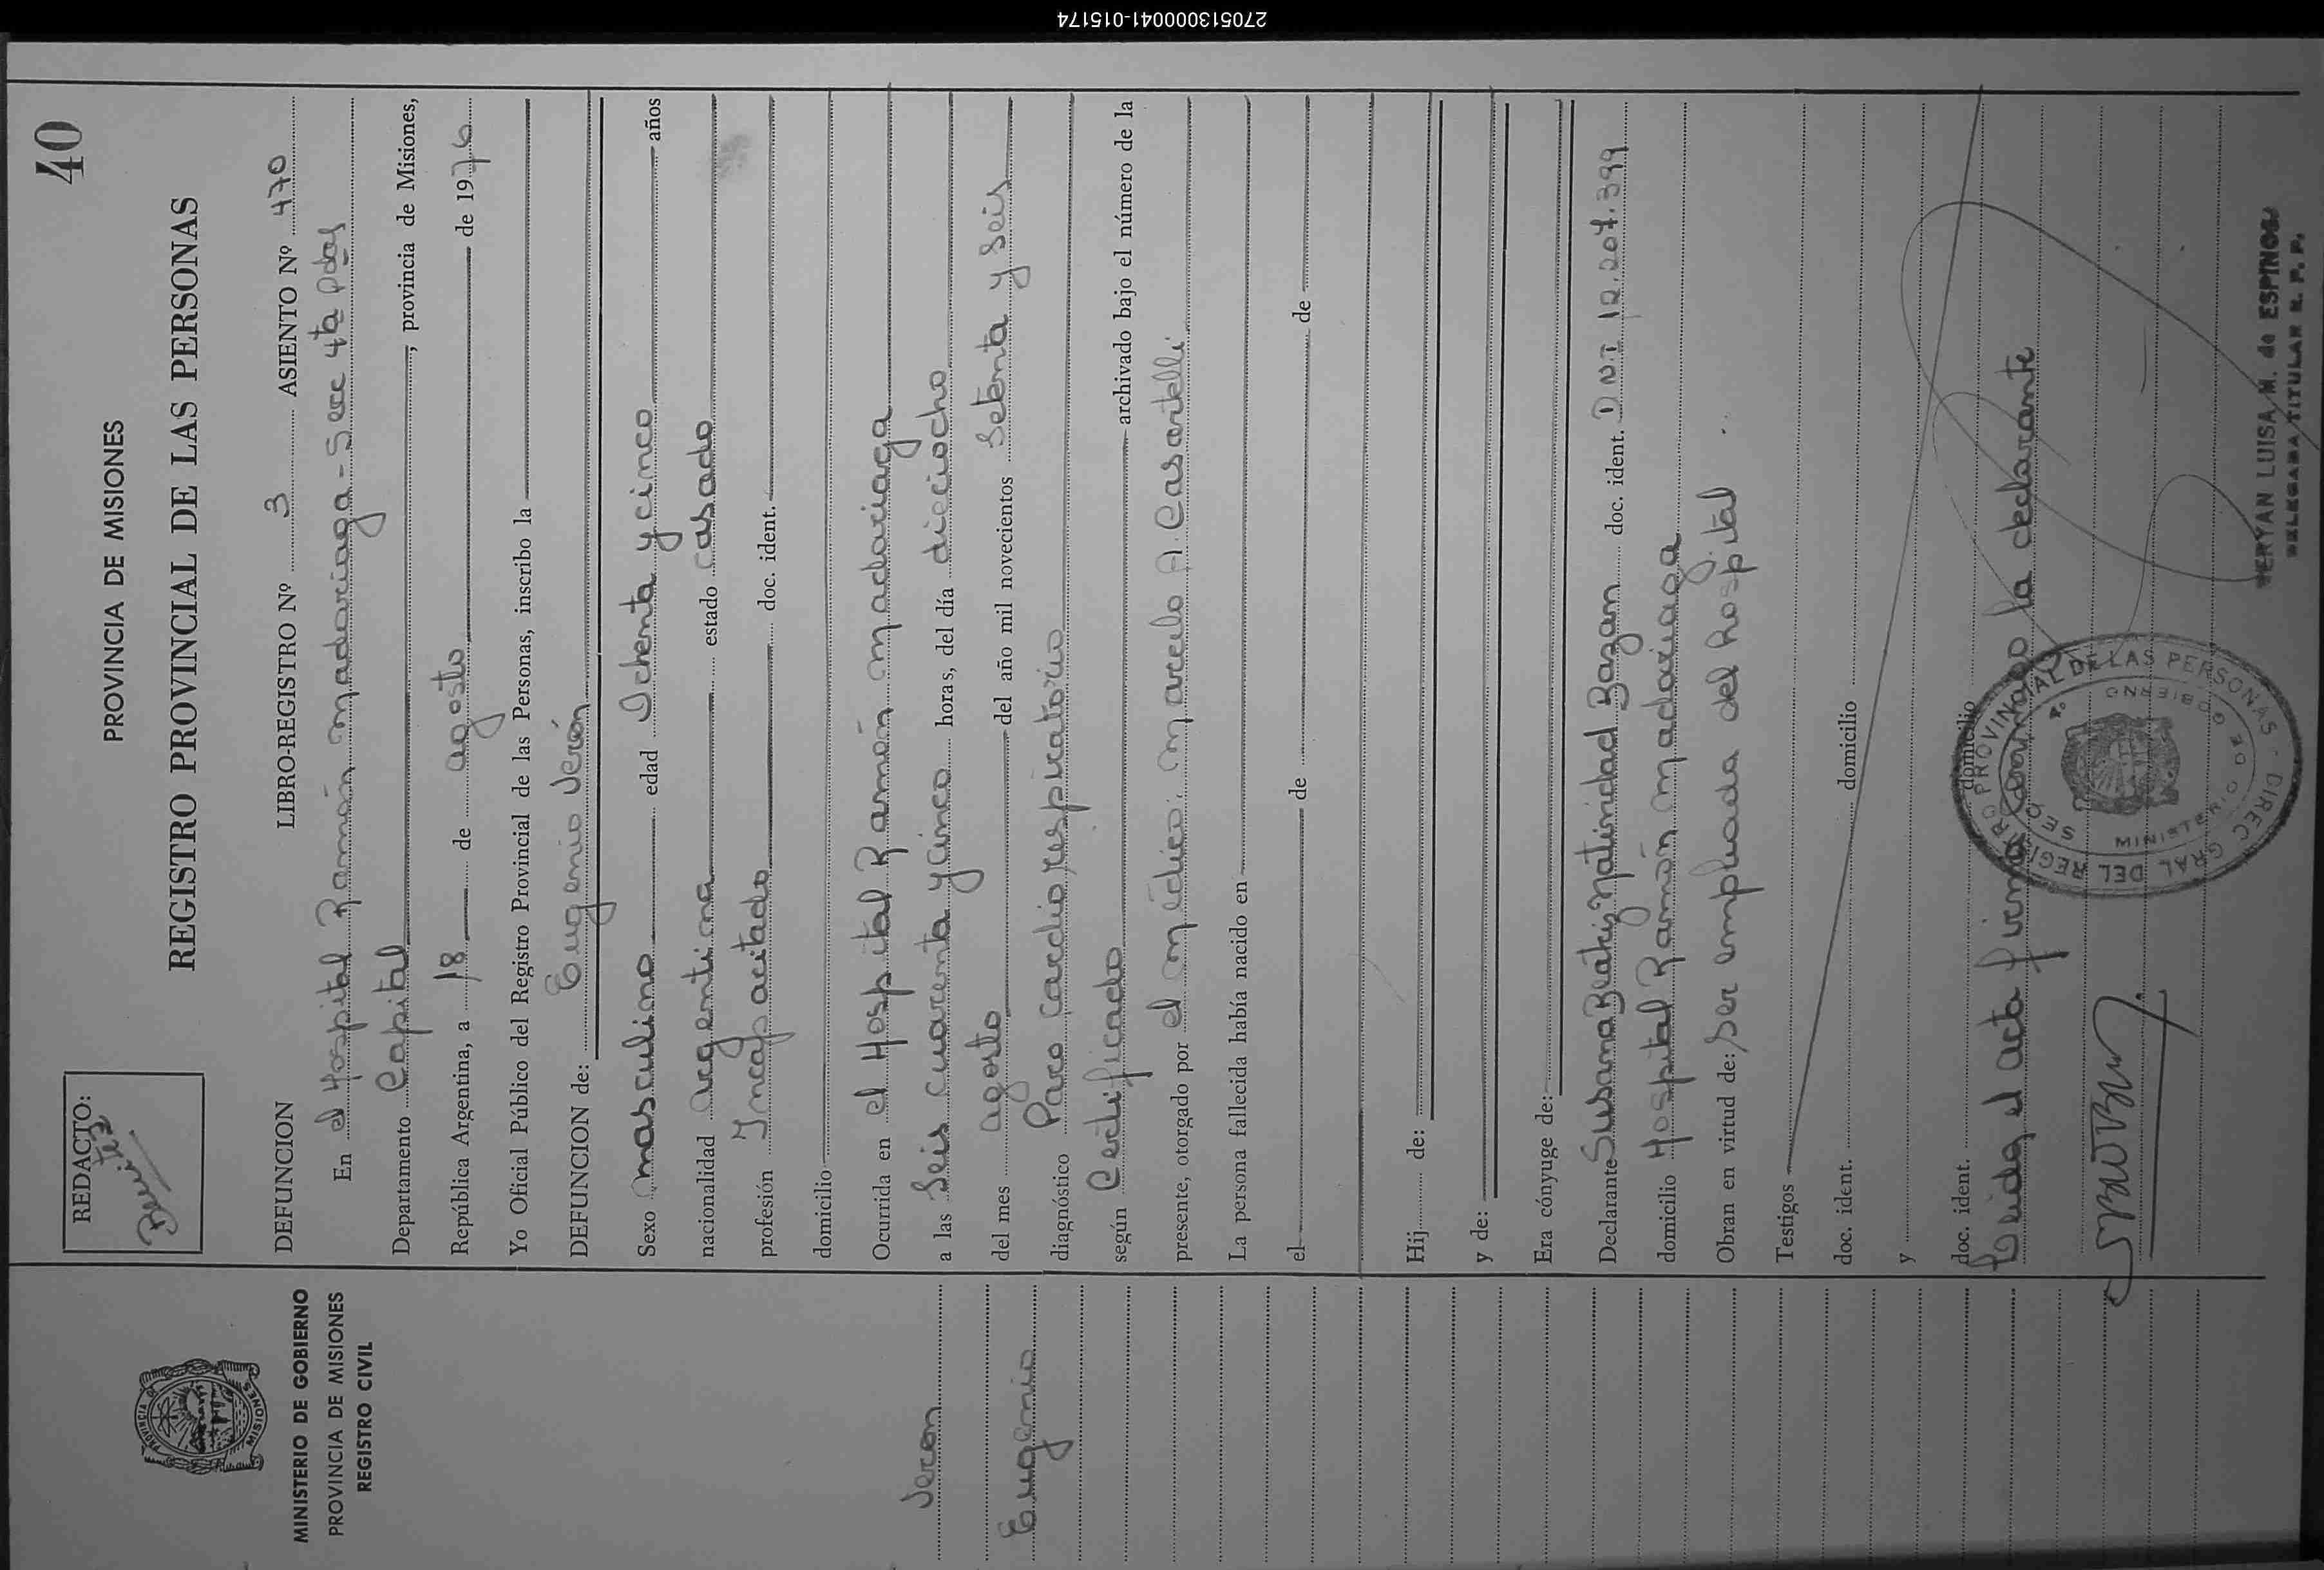 270513000041-015174
40
REDACTO:
PROVINCIA DE MISIONES
REGISTRO PROVINCIAL DE LAS PERSONAS
MINISTERIO DE GOBIERNO
PROVINCIA DE MISIONES
REGISTRO CIVIL
Veron
Eugenio
DEFUNCION LIBRO-REGISTRO Nº 3 ASIENTO Nº 470
En el Hospital Ramón Madariaga - Secc 4ta Pdas
Departamento Capital, provincia de Misiones,
República Argentina, a 18 de agosto de 1976
Yo Oficial Público del Registro Provincial de las Personas, inscribo la
DEFUNCION de: Eugenio Verón
Sexo masculino edad Ochenta y cinco años
nacionalidad argentina estado casado
profesión Incapacitado doc. ident.
domicilio
Ocurrida en el Hospital Ramón Madariaga
a las Seis cuarenta y cinco horas, del día dieciocho
del mes agosto del año mil novecientos Setenta y Seis
diagnóstico Paro Cardio respiratorio
según Certificado archivado bajo el número de la
presente, otorgado por el médico: Marcelo A. Casartelli
La persona fallecida había nacido en
el de de
Hij de:
y de:
Era cónyuge de:
Declarante Susana Beatriz Natividad Bazan doc. ident. DNI 12.207.399
domicilio Hospital Ramón Madariaga
Obran en virtud de: Ser empleada del hospital.
Testigos
doc. ident. domicilio
y
doc. ident. domicilio
Leida el acta firma conmigo la declarante
DIREC. GRAL. DEL REGISTRO PROVINCIAL DE LAS PERSONAS
MINISTERIO DE GOBIERNO
LUISA M. de ESPINOSA
DELEGADA TITULAR R. P. P.